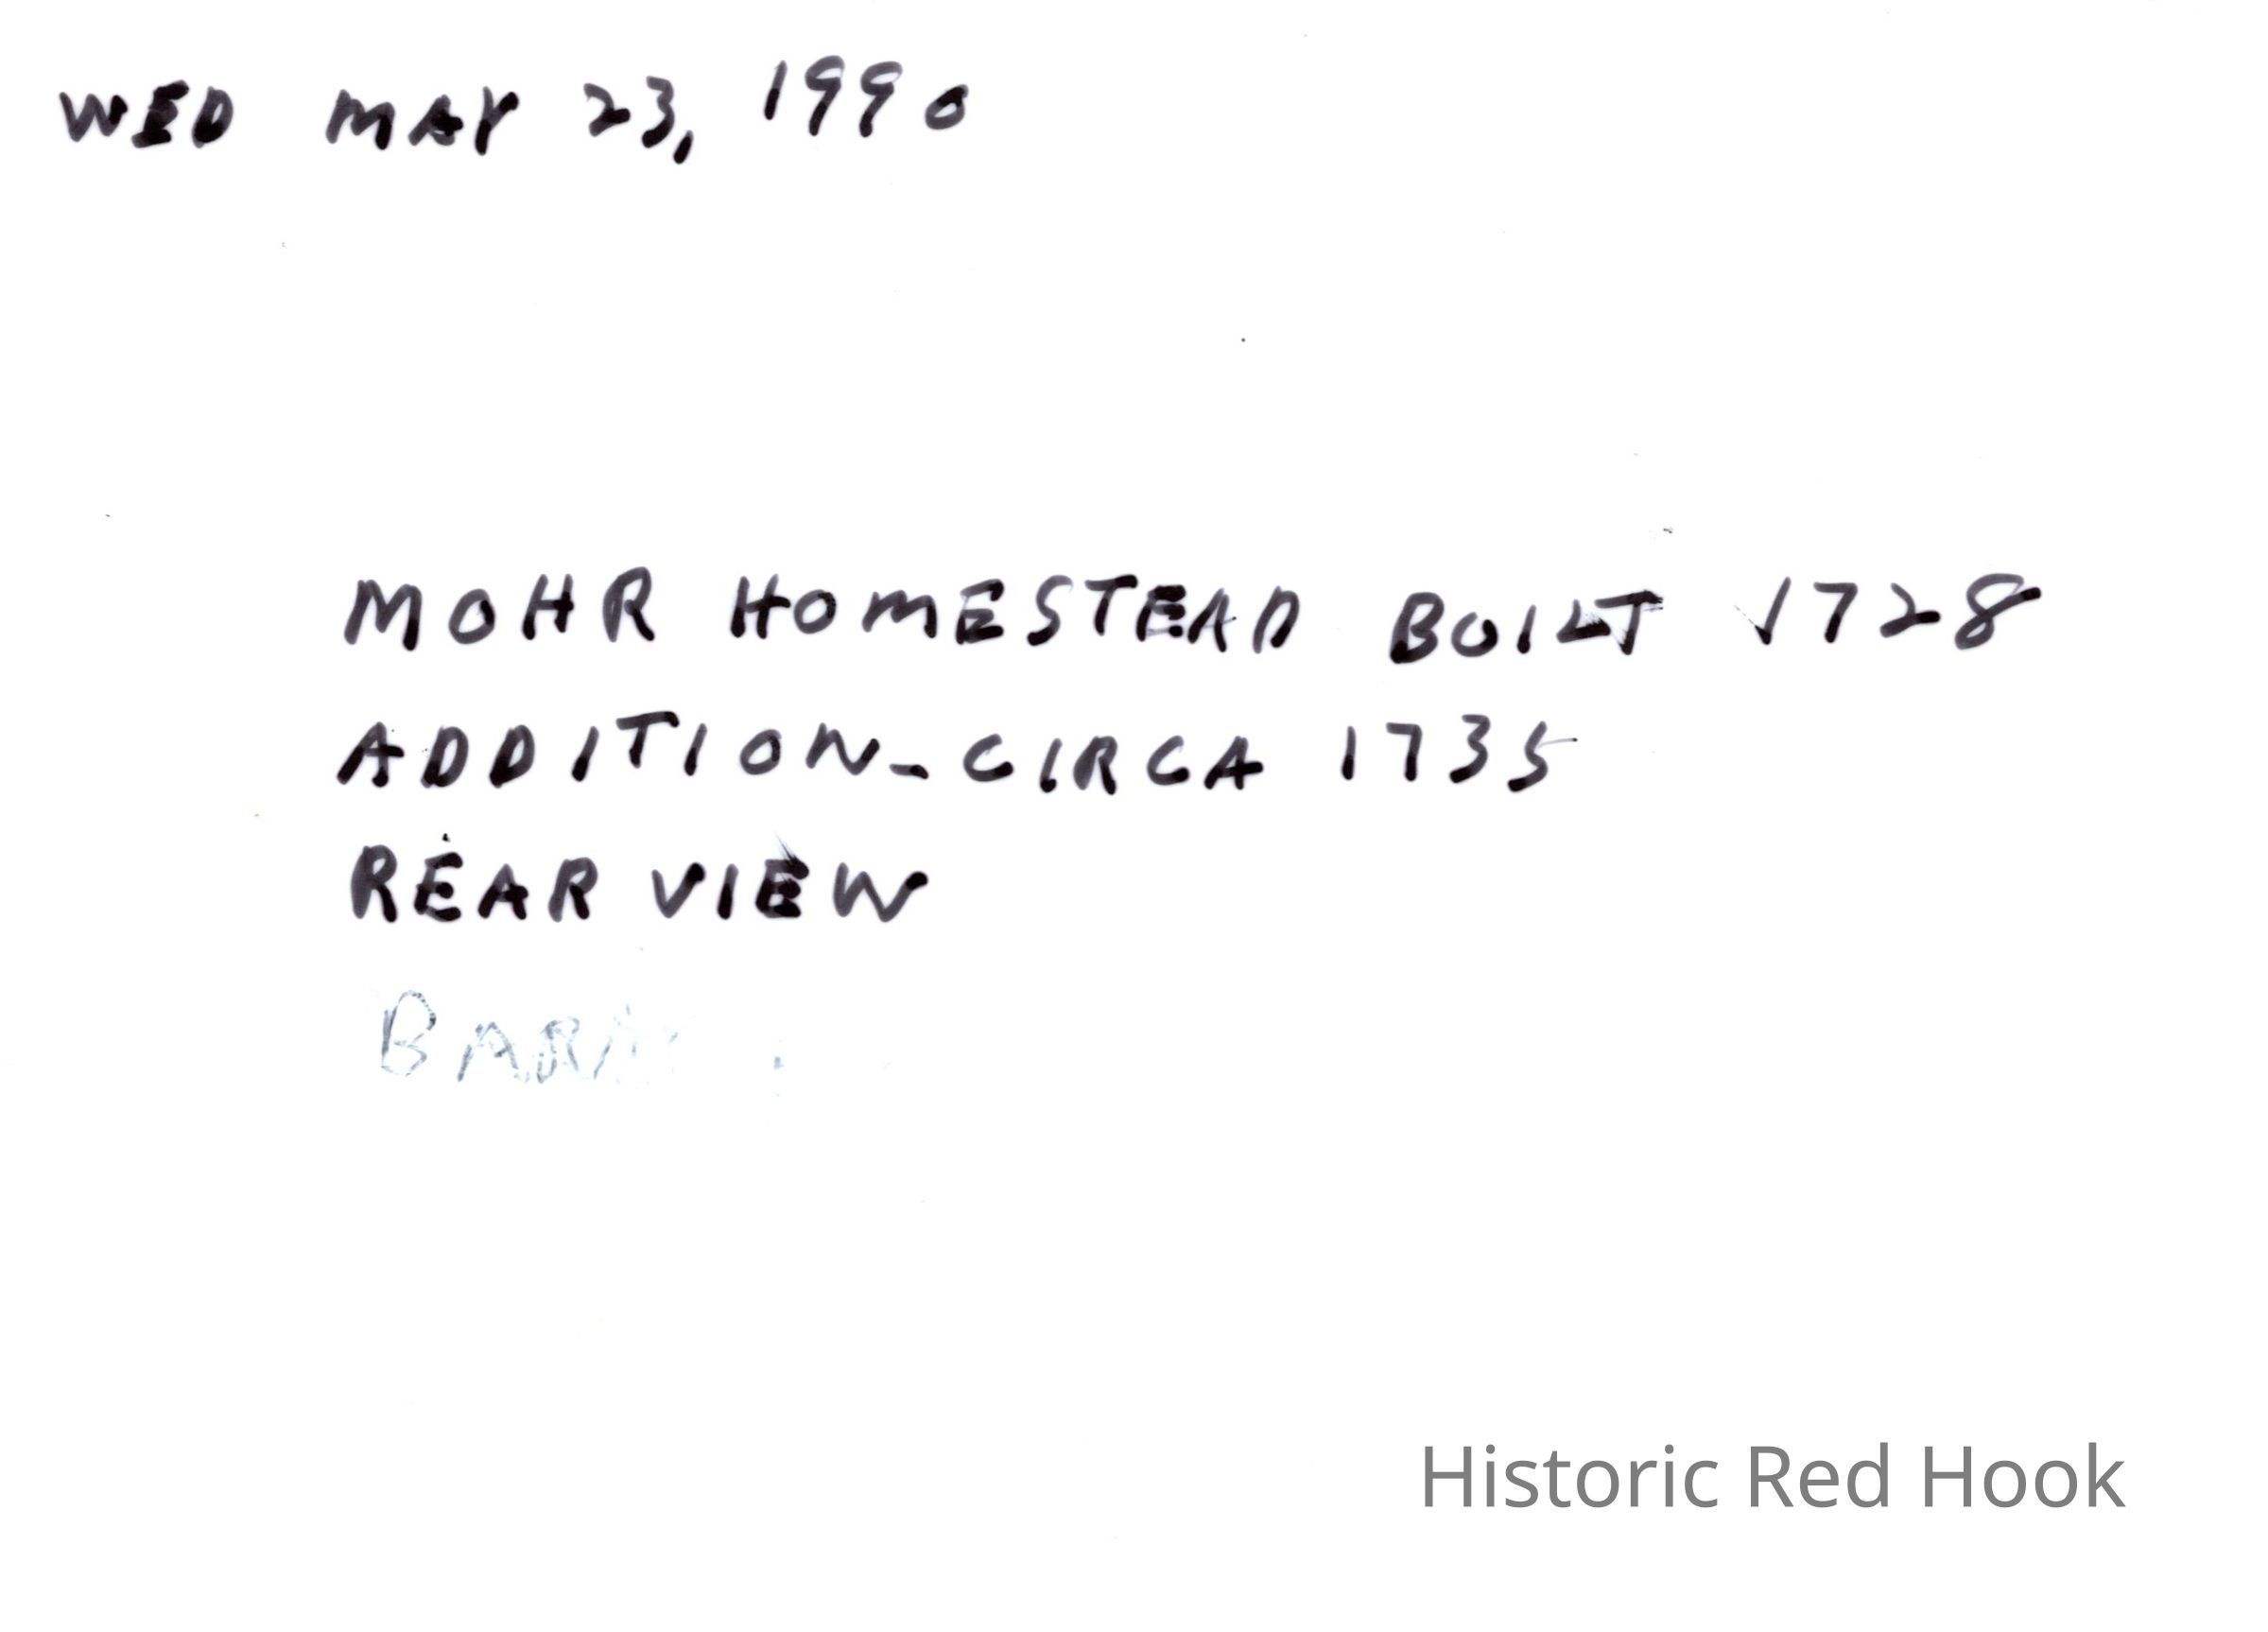 WED MAY 23, 1990
MOHR HOMESTEAD BUILT 1728
ADDITION-CIRCA 1735
REAR VIEW
Historic Red Hook